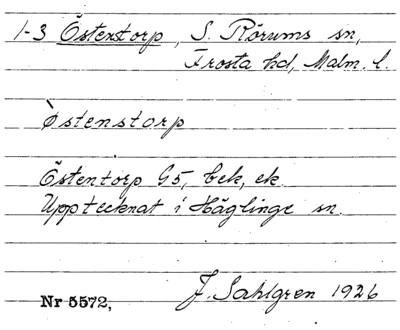 1-3 Östentorp, S. Rörums sn,
Frosta hd, Malm. l.
Østenstorp
Östentorp G5, bek, ek.
Upptecknat i Häglinge sn.
Nr 5572, J. Sahlgren 1926